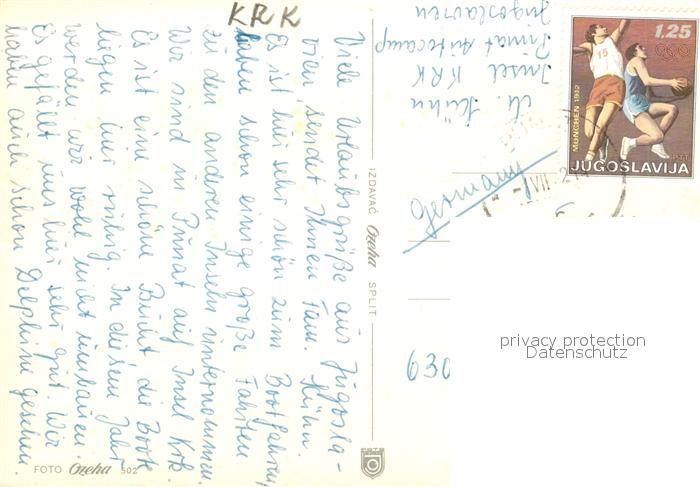 KRK
Viele Urlaubsgrüße aus Jugosla-
vien sendet Ihnen Fam. Kühn.
Es ist hier sehr schön zum Bootfahren,
haben schon einige große Fahrten
zu den anderen Inseln unternommen.
Wir sind in Punat auf Insel Krk
Es ist eine schöne Bucht die Boote
liegen hier ruhig. In diesem Jahr
werden wir wohl nicht umbauen.
Es gefällt uns hier sehr gut. Wir
haben auch schon Delphine gesehen.
FOTO Ozeha 502
IZDAVAČ Ozeha SPLIT
Kühn
Insel KRK
Punat Autocamp
Jugoslavien
1.25
15
MÜNCHEN 1972
JUGOSLAVIJA
VII
Germany
630
privacy protection
Datenschutz